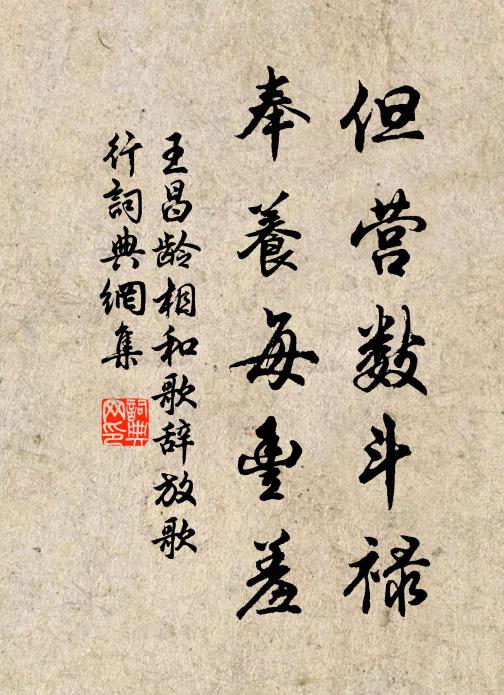 但营数斗禄
奉養每豊羞
王昌龄相和歌辞放歌
行詞典網集
詞典
网印